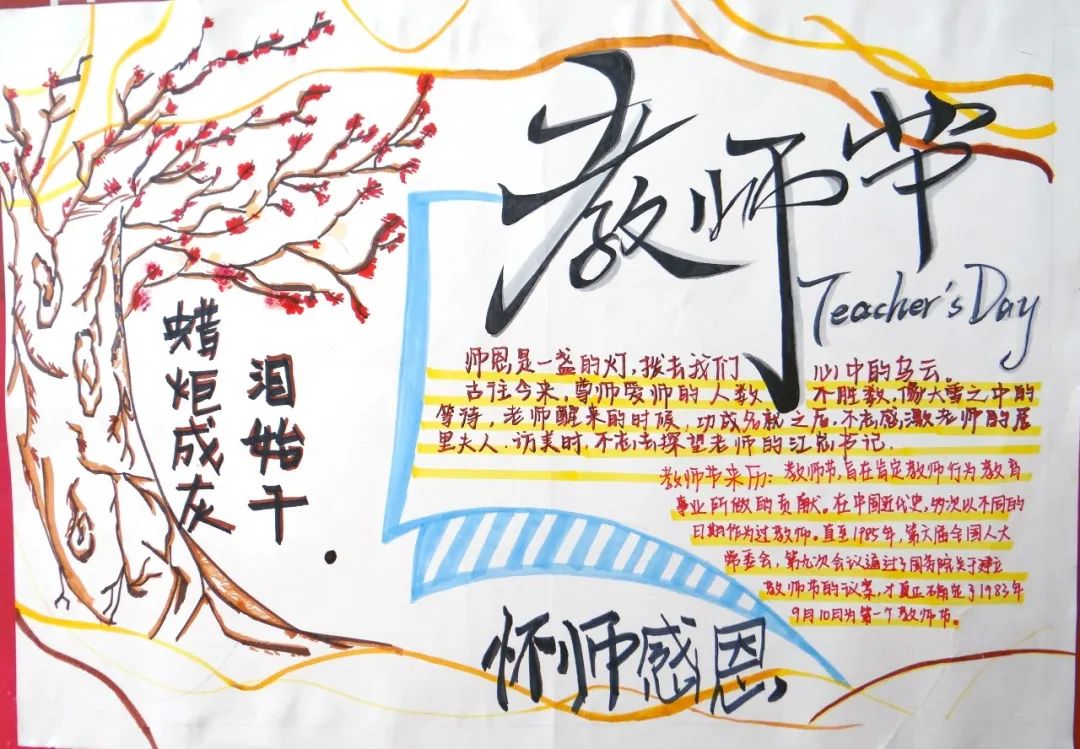 教师节
Teacher's Day
师恩是一盏的灯,拨去我们 心中的乌云。
古往今来,尊师爱师的人数 不胜数,像大雪之中的
等待,老师醒来的时候,功成名就之后,不忘感激老师的居
里夫人.访美时,不忘去探望老师的江总书记.
教师节来历:教师节,旨在肯定教师行为教育
事业所做的贡献。在中国近代史,多次以不同的
日期作为过教师。直至1985年,第六届全国人大
常委会,第九次会议通过了国务院关于建立
教师节的议案,才真正确定了1983年
9月10日为第一个教师节。
蜡炬成灰
泪始干.
怀师感恩